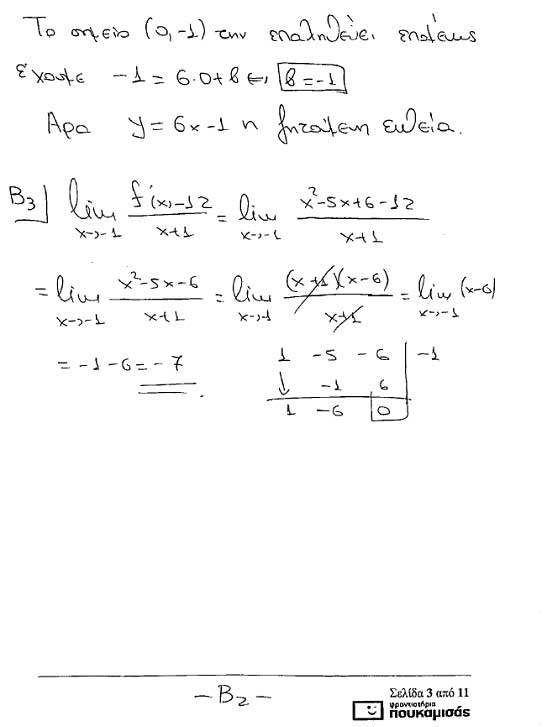 Το σημείο (0,-1) την επαληθεύει επομένως
έχουμε -1 = 6·0+β ⇔ β=-1
Άρα y = 6x-1 η ζητούμενη ευθεία.
B3 lim x→-1 f'(x)-12 / x+1 = lim x→-1 x²-5x+6-12 / x+1
= lim x→-1 x²-5x-6 / x+1 = lim x→-1 (x+1)(x-6) / x+1 = lim x→-1 (x-6)
= -1-6 = -7
1 -5 -6 | -1
↓ -1 6
1 -6 0
-B2-
Σελίδα 3 από 11
φροντιστήρια
πουκαμισάς